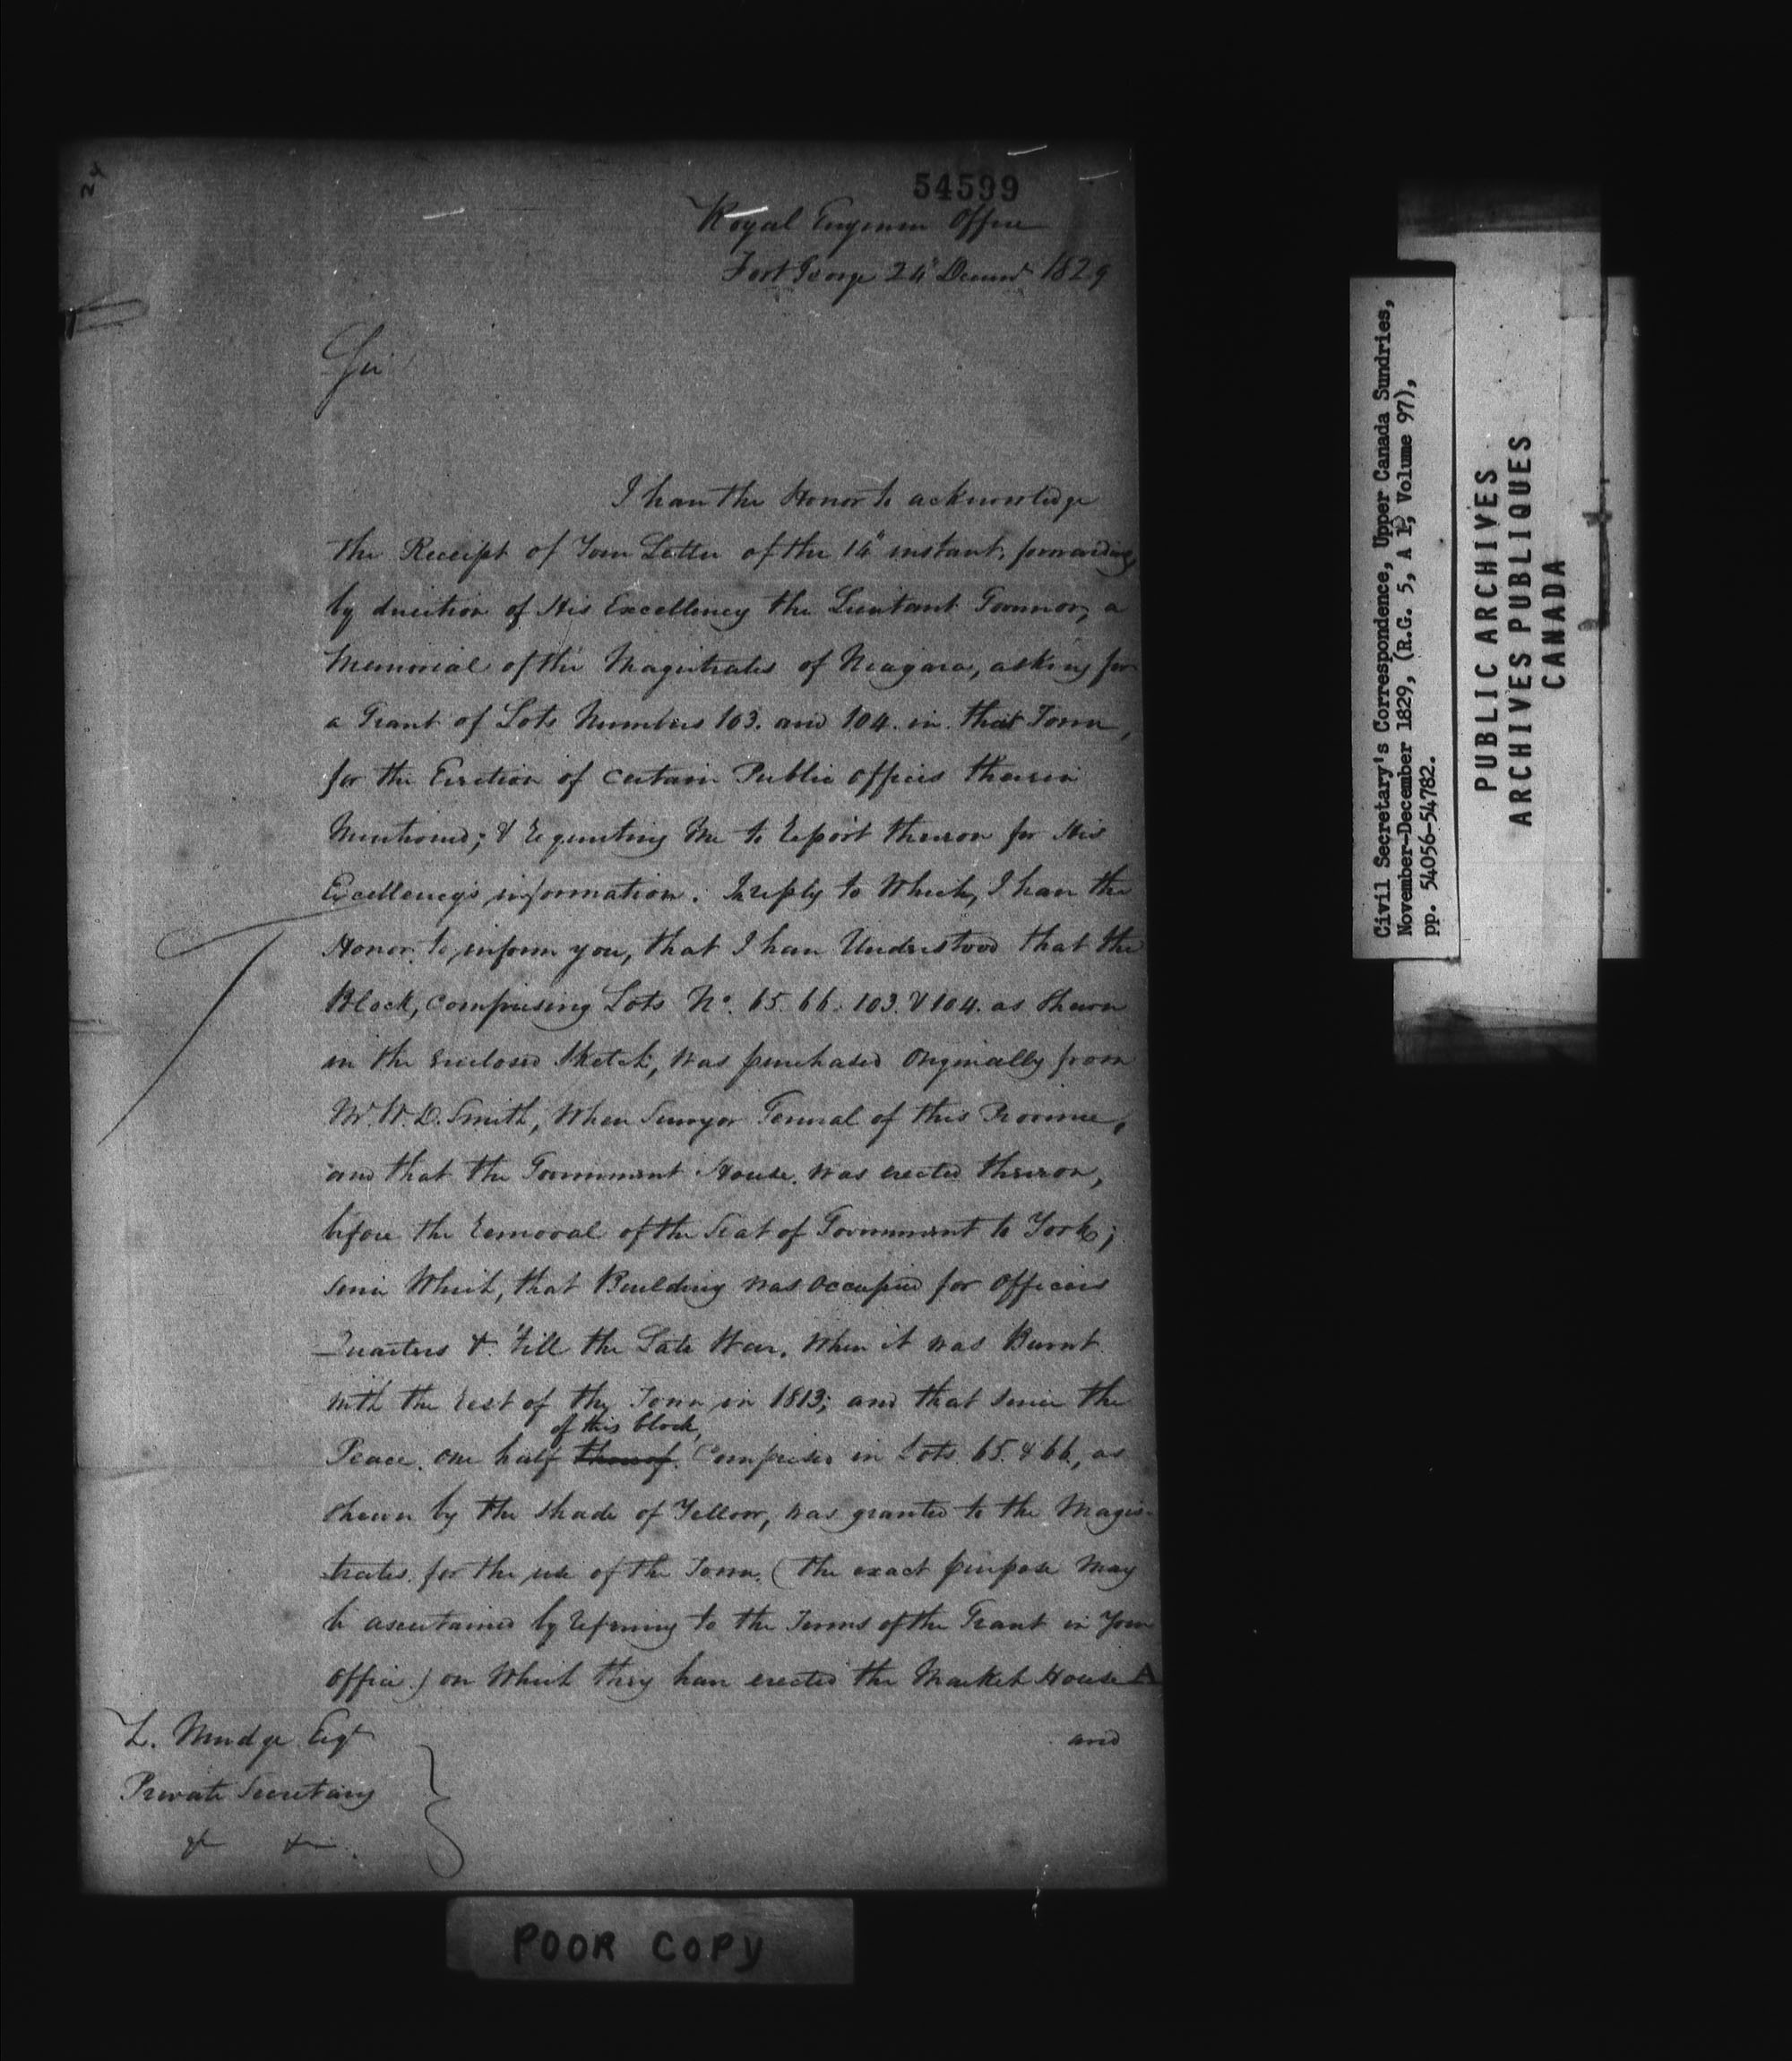 24
54599
Royal Engineer Office
Fort George 24th Decemr 1829
Sir
I have the Honor to acknowledge
the Receipt of Your Letter of the 14th instant, forwarding,
by direction of His Excellency the Lieutenant Governor, a
Memorial of the Magistrates of Niagara, asking for
a Grant of Lots Numbers 103. and 104. in that Town,
for the Erection of certain Public offices therein
Mentioned; & requesting Me to report thereon for His
Excellency's information. In reply to Which, I have the
Honor to inform you, that I have Understood that the
Block, comprising Lots No. 65. 66. 103. & 104. as shewn
in the enclosed Sketch, was purchased Originally from
Mr. W. D. Smith, When Surveyor General of this Province,
and that the Government House was erected thereon,
before the removal of the Seat of Government to York;
since Which, that Building was occupied for officers
Quarters &c. 'till the Late War, When it was Burnt
with the rest of the Town in 1813; and that since the
of this block,
Peace, one half thereof. Comprised in Lots 65. & 66, as
shewn by the shade of Yellow, was granted to the Magis-
trates for the use of the Town. (the exact purpose May
be ascertained by referring to the Terms of the Grant in Your
office) on Which they have erected the Market House A
and
Z. Mudge Esqr
Private Secretary
&c &c.
POOR COPY
Civil Secretary's Correspondence, Upper Canada Sundries,
November-December 1829, (R.G. 5, A 1, Volume 97),
pp. 54056-54782.
PUBLIC ARCHIVES
ARCHIVES PUBLIQUES
CANADA